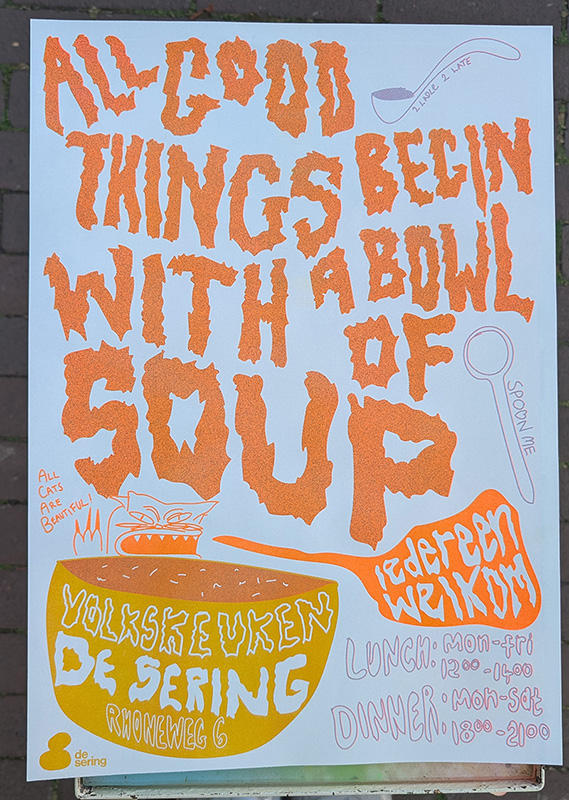 ALL GOOD
2 LADLE 2 LATE
THINGS BEGIN
WITH A BOWL
OF
SOUP
SPOON ME
ALL
CATS
ARE
BEAUTIFUL!
iedereen
WELKOM
VOLKSKEUKEN
DE SERING
RHONEWEG 6
LUNCH: mon-fri
12⁰⁰-14⁰⁰
DINNER: mon-sat
18⁰⁰-21⁰⁰
de
sering